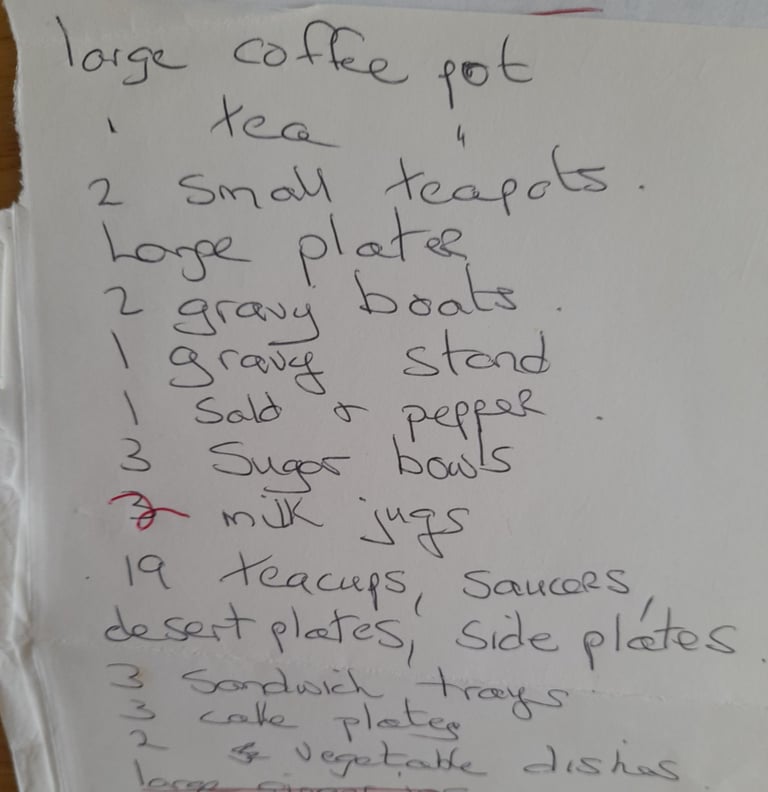 large coffee pot
" tea "
2 small teapots.
Large plates
2 gravy boats.
1 gravy stand
1 Sald & pepper.
3 Sugar bowls
2 milk jugs
19 teacups, saucers,
desert plates, side plates.
3 Sandwich trays
3 cake plates
2 vegetable dishes
large